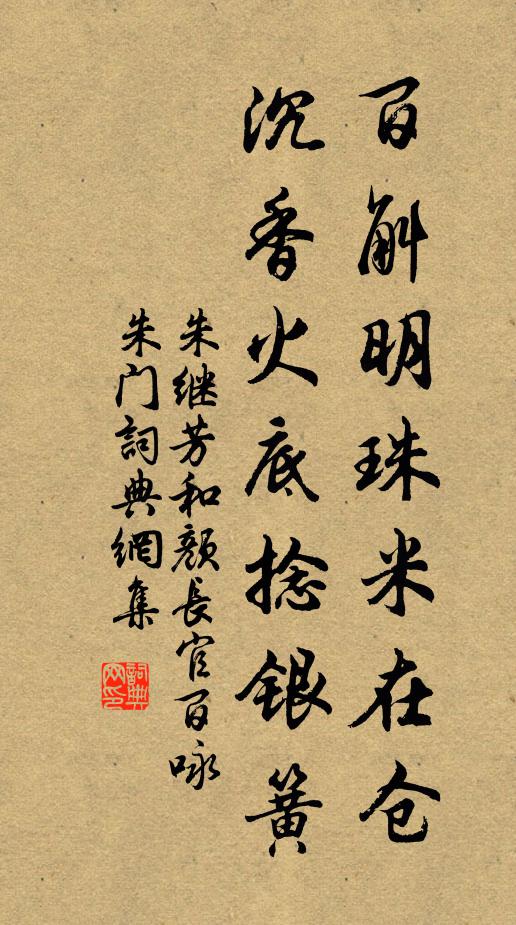 百斛明珠米在仓
沉香火底捻银簧
朱继芳和颜長官百咏
朱门詞典網集
詞典
网印